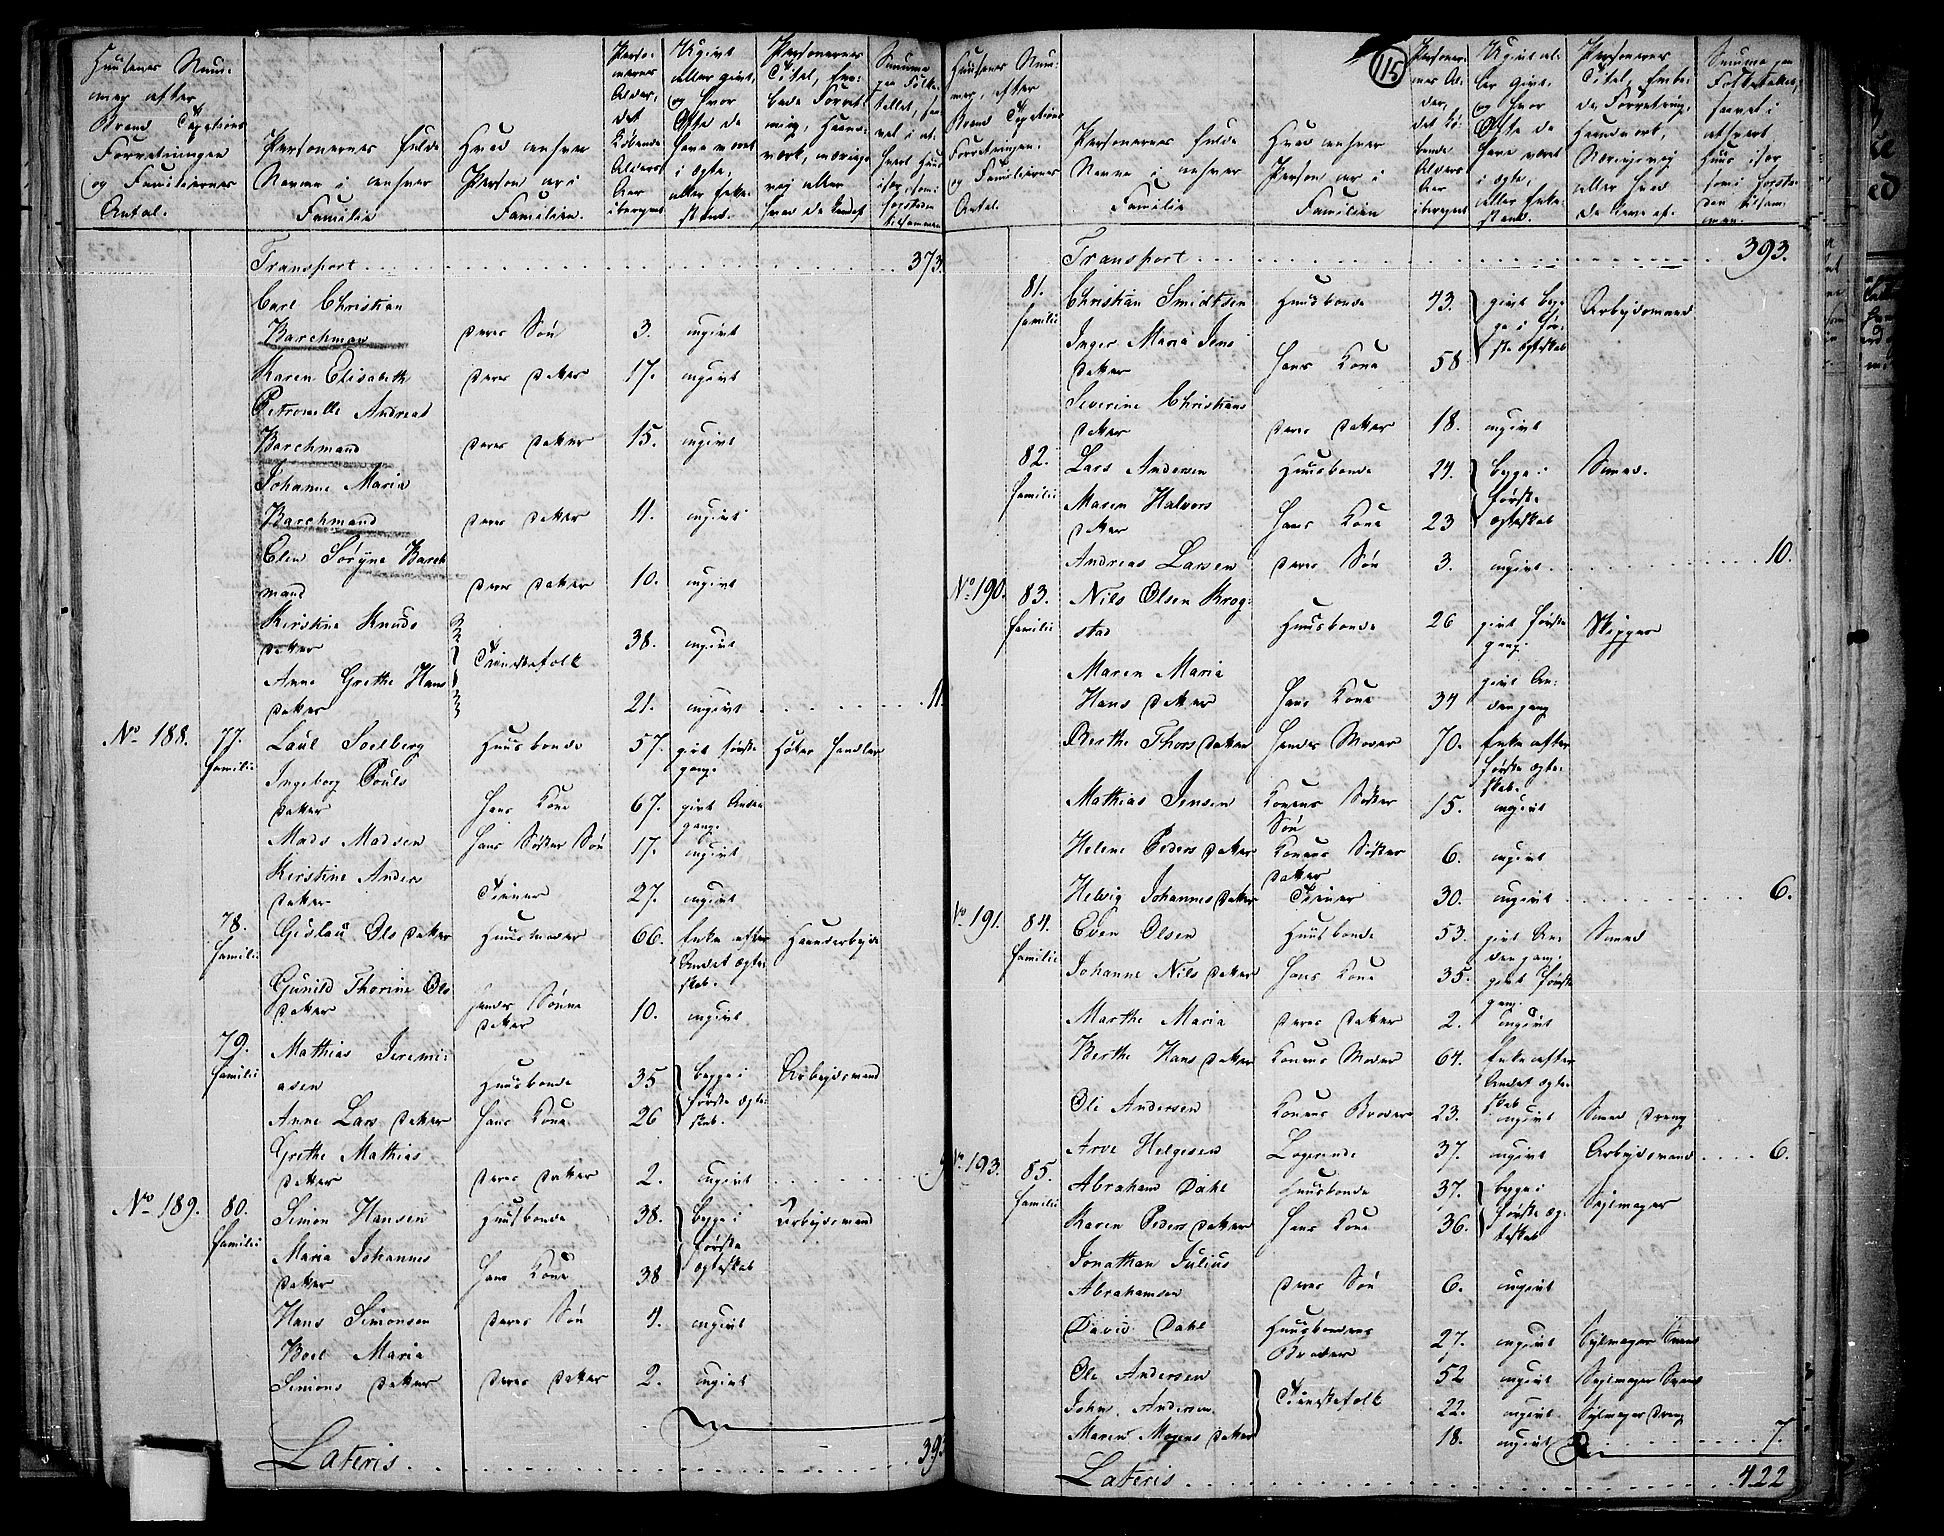 Huusenes Num-
mer efter
Brand Taxations
Forretningen
og Familiernes
Antal.
Personernes fulde
Navne i enhver
Familie
Hvad enhver
Person er i
Familien.
Perso-
nernes
Alder,
det
Løbende
Alders
Aar
iberegnet
Ugivt
eller givt,
og hvor
Ofte de
have været
i Ægte,
eller Enke-
stand.
Personernes
Titel, Em-
bede Forret-
ning, Haand-
værk, nærings
vej eller
hvad de levde af
Transport . . . 373.
Carl Christian
Barchman deres Søn 3. ugivt
Karen Elisabeth deres Datter 17. ugivt
Petronelle Andrea
Barchmand deres Datter 15. ugivt
Johanne Maria
Barchmand deres Datter 11. ugivt
Elen Sørine Barch
mand deres Datter 10. ugivt
Kirstine Knuds
Datter Tienestefolk 38. ugivt
Anne Grethe Hans
Datter 21. ugivt . . . 11.
No 188. 77. familie Laul Soelberg Huusbonde 57. givt første gang Höker Handler
Ingeborg Pouls
Datter Hans Kone 67. givt Anden gang
Mads Madsen Hans Søster Søn 17. ugivt
Kirstine Anders
Datter Tiener 27. ugivt
78. familie Gislau Ols Datter Huusmoder 66. Enke efter Andet Ægteskab. Haandarbeyde
Gunild Thorine Ols
Datter hendes Sønne Datter 10. ugivt
79. familie Mathias Jeremi-
asen Huusbonde 35 begge i første Ægteskab. Arbeydsmand
Anne Lars Datter Hans Kone 26
Grethe Mathias
Datter deres Datter 2. ugivt . . . 9
No 189. 80. familie Simon Hansen Huusbonde 38. begge i første Ægteskab Arbeydsmand
Maria Johannes
Datter Hans Kone 38
Hans Simonsen deres Søn 4. ugivt
Boel Maria
Simons Datter deres Datter 2. ugivt
Lateris . . . 393
115
Huusenes Num-
mer, efter
Brand Taxations
Forretningen.
og Familiernes
Antal.
Personernes fulde
Navne i enhver
Familie
Hvad enhver
Person er i
Familien
Transport . . . 393.
81. familie Christian Smidtsen Huusbonde 43. givt begge i første Ægteskab Arbeydsmand
Inger Maria Jens
Datter Hans Kone 58
Severine Christians
Datter deres Datter 18. ugivt
82. familie Lars Andersen Huusbonde 24. begge i første Ægteskab Smed.
Maren Halvors
Datter Hans Kone 23
Andreas Larsen deres Søn 3. ugivt . . . 10.
No 190. 83. familie Nils Olsen Krog-
stad Huusbonde 26 givt første gang. Skipper
Maren Maria
Hans Datter Hans Kone 34 givt Anden gang
Berthe Thors Datter Hendes Moder 70. Enke efter første Ægteskab.
Mathias Jensen Konens Søster Søn 15. ugivt
Helene Peders Datter Konens Søster Datter 6. ugivt
Helvig Johannes Datter Tiener 30. ugivt . . . 6.
No 191. 84. familie Eden Olsen Huusbonde 53. givt Anden gang. Smed
Johanne Nils Datter Hans Kone 35. givt første gang.
Marthe Maria deres Datter 2. ugivt
Berthe Hans Datter Konens Moder 64. Enke efter Andet Ægteskab
Ole Andersen Konens Broder 23. ugivt Smed Dreng
Arve Helgesen Logerende 37. ugivt Arbeydsmand . . . 6.
No 193. 85. familie Abraham Dahl Huusbonde 37. begge i første Ægteskab Sejlmager
Karen Peders Datter Hans Kone 36.
Jonathan Julius
Abrahamsen deres Søn 6. ugivt
David Dahl Huusbondens Broder 27. ugivt Sejlmager Svend
Ole Andersen Tienestefolk 52 ugivt Sejlmager Svend
John Andersen 22. ugivt Sejlmager Dreng
Maren Mogens Datter 18. ugivt . . . 7.
Lateris . . . 422